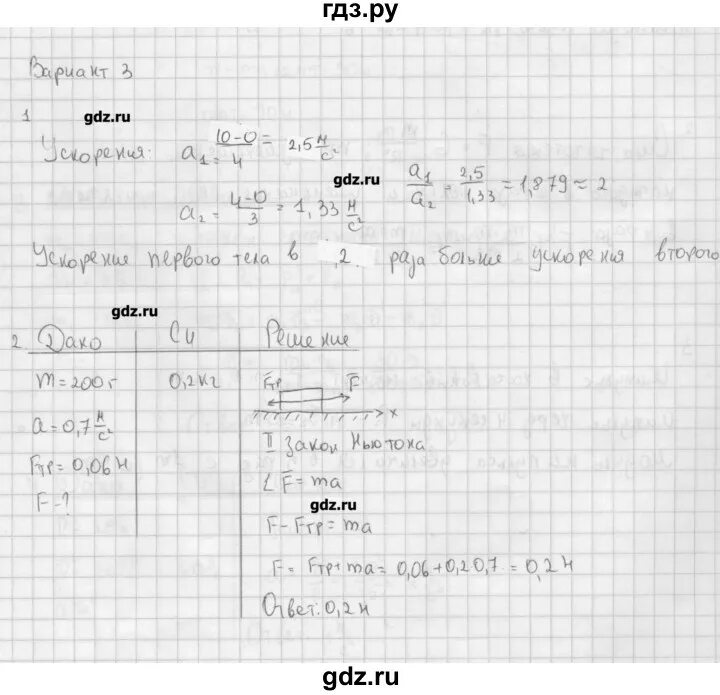 гдз.ру
Вариант 3
1
gdz.ru
Ускорения: a₁ = (10-0)/4 = 2,5 м/с²
gdz.ru
a₁/a₂ = 2,5/1,33 = 1,879 ≈ 2
a₂ = (4-0)/3 = 1,33 м/с²
Ускорение первого тела в 2 раза больше ускорения второго
gdz.ru
2 Дано СИ Решение
m = 200 г 0,2 кг Fтр F
a = 0,7 м/с² x
II закон Ньютона
Fтр = 0,06 Н
F = ma
F - ?
gdz.ru
F - Fтр = ma
F = Fтр + ma = 0,06 + 0,2 0,7 = 0,2 Н
Ответ: 0,2 Н
gdz.ru